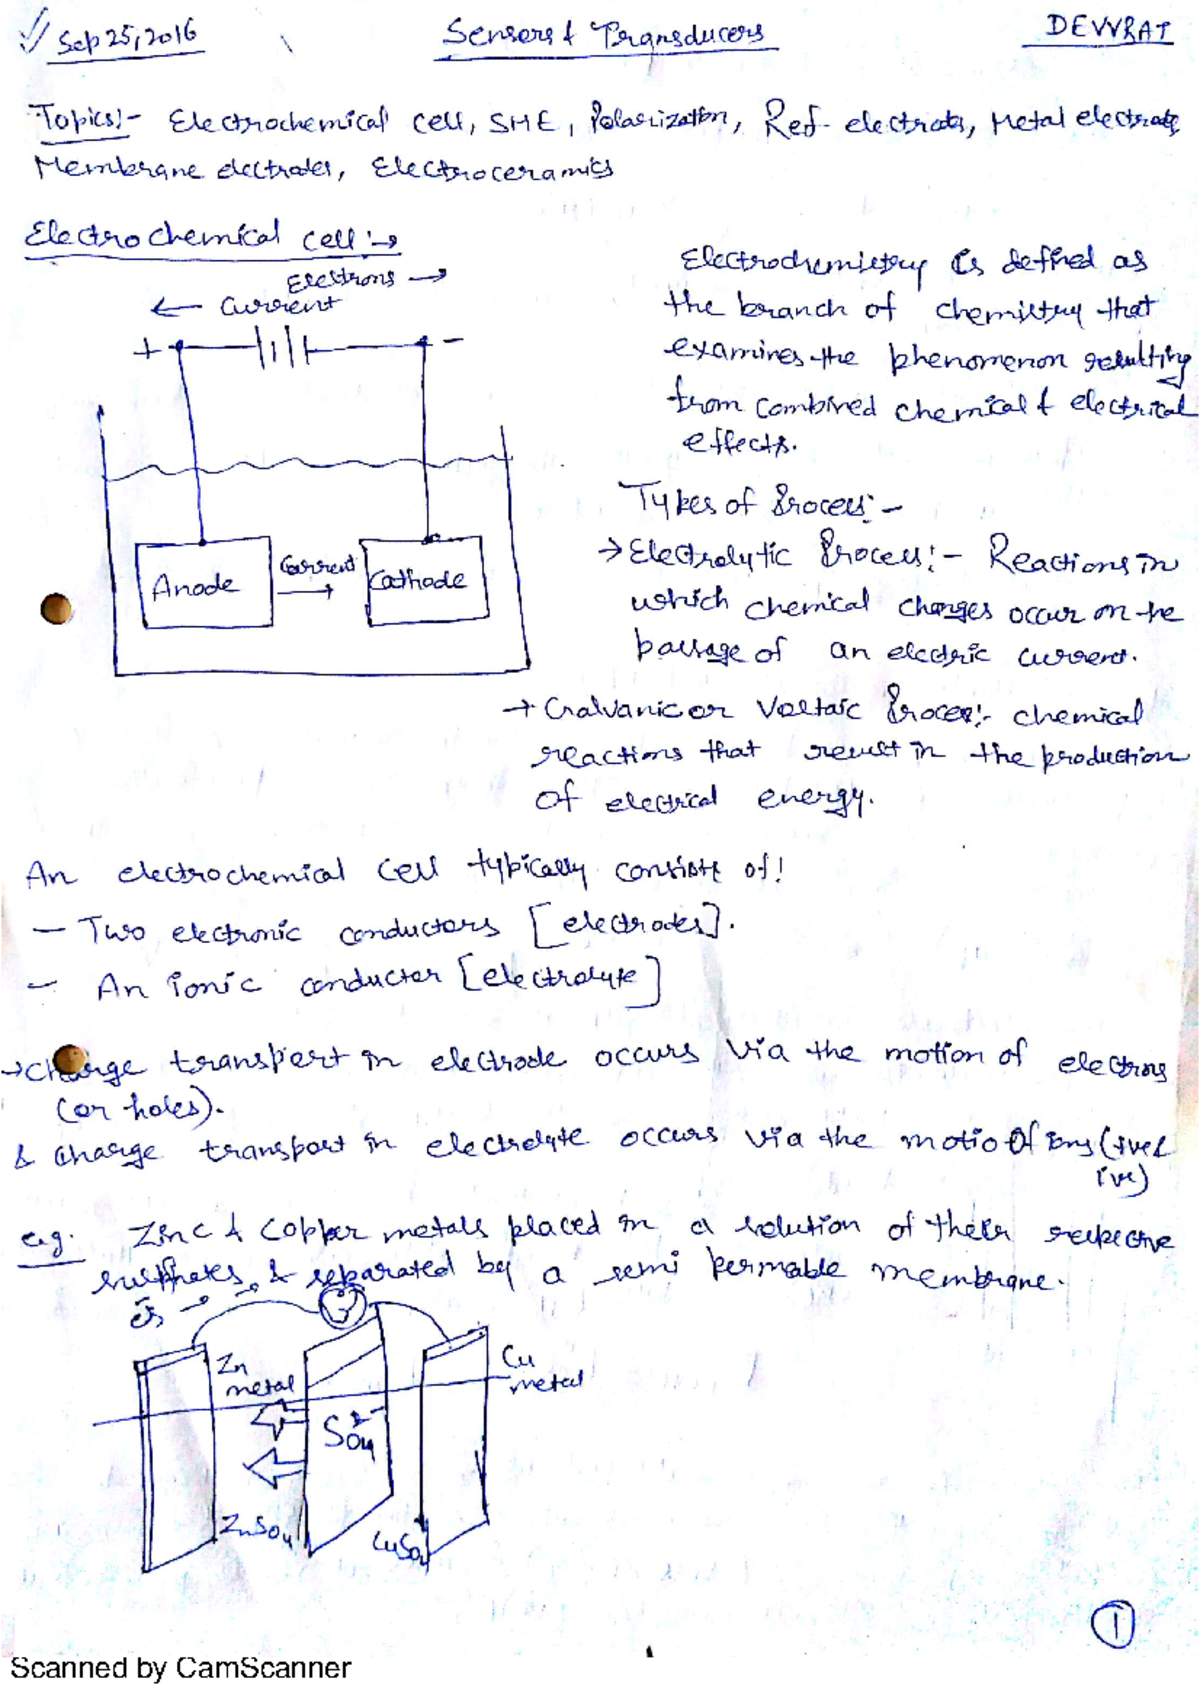 Sep 25, 2016
Sensors & Transducers
DEVVRAT
Topics:- Electrochemical cell, SHE, Polarization, Ref. electrodes, Metal electrode
Membrane electrodes, Electroceramics
Electrochemical cell :→
Electrons →
← Current
+ -
Anode
Current →
Cathode
Electrochemistry is defined as
the branch of chemistry that
examines the phenomenon resulting
from combined chemical & electrical
effects.
Types of Process:-
→ Electrolytic Process:- Reactions in
which chemical changes occur on the
passage of an electric current.
→ Galvanic or Voltaic Process:- chemical
reactions that result in the production
of electrical energy.
An electrochemical cell typically consists of:
- Two electronic conductors [electrodes].
- An ionic conductor [electrolyte]
→ Charge transport in electrode occurs via the motion of electrons
(or holes).
& charge transport in electrolyte occurs via the motio of ions (+ve &
-ve)
e.g. Zinc & Copper metals placed in a solution of their respective
sulphates, & separated by a semi permable membrane.
Zn
metal
Cu
metal
SO4 2-
ZnSO4
CuSO4
1
Scanned by CamScanner